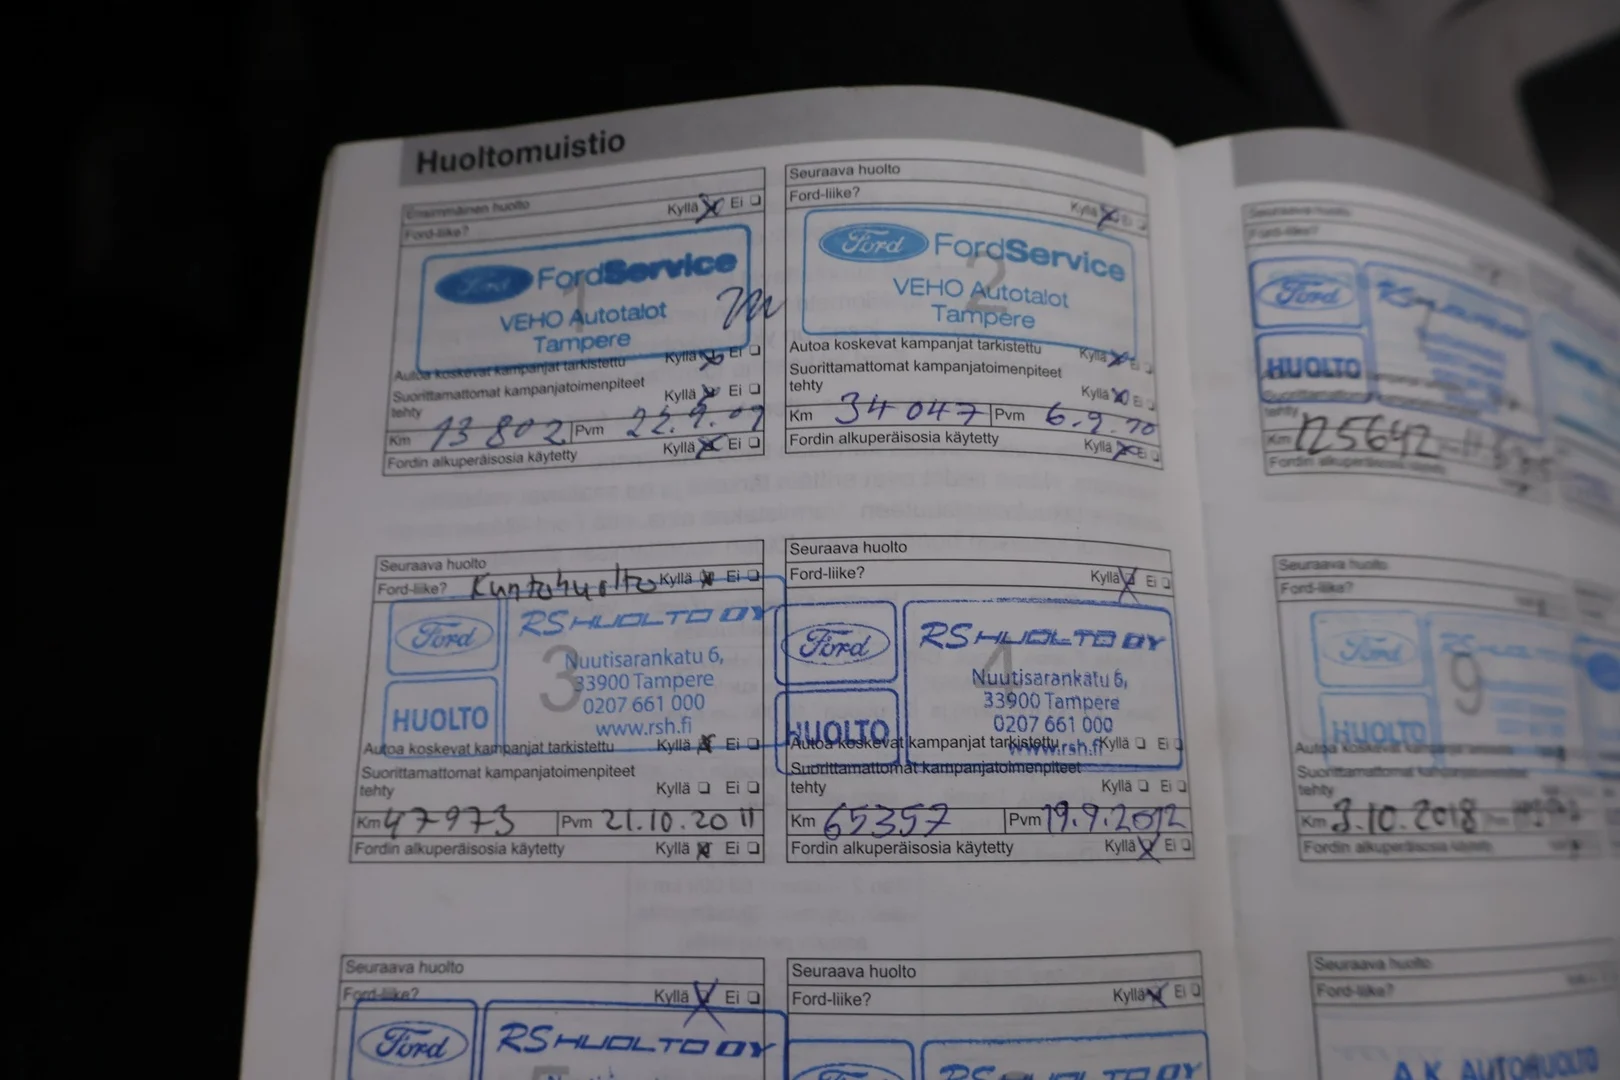 Huoltomuistio
Ensimmäinen huolto
Ford-liike? Kyllä Ei
Ford FordService
1
VEHO Autotalot
Tampere
Autoa koskevat kampanjat tarkistettu Kyllä Ei
Suorittamattomat kampanjatoimenpiteet
tehty Kyllä Ei
Km 13 802 Pvm 22.9.09
Fordin alkuperäisosia käytetty Kyllä Ei
Seuraava huolto
Ford-liike? Kyllä Ei
Ford FordService
2
VEHO Autotalot
Tampere
Autoa koskevat kampanjat tarkistettu Kyllä Ei
Suorittamattomat kampanjatoimenpiteet
tehty Kyllä Ei
Km 34 047 Pvm 6.9.10
Fordin alkuperäisosia käytetty Kyllä Ei
Seuraava huolto
Ford-liike? Kuntohuolto Kyllä Ei
Ford RS HUOLTO OY
3
Nuutisarankatu 6,
33900 Tampere
0207 661 000
HUOLTO www.rsh.fi
Autoa koskevat kampanjat tarkistettu Kyllä Ei
Suorittamattomat kampanjatoimenpiteet
tehty Kyllä Ei
Km 47973 Pvm 21.10.2011
Fordin alkuperäisosia käytetty Kyllä Ei
Seuraava huolto
Ford-liike? Kyllä Ei
Ford RS HUOLTO OY
4
Nuutisarankatu 6,
33900 Tampere
0207 661 000
HUOLTO www.rsh.fi
Autoa koskevat kampanjat tarkistettu Kyllä Ei
Suorittamattomat kampanjatoimenpiteet
tehty Kyllä Ei
Km 65357 Pvm 19.9.2012
Fordin alkuperäisosia käytetty Kyllä Ei
Seuraava huolto
Ford-liike? Kyllä Ei
Ford RS HUOLTO OY
Seuraava huolto
Ford-liike? Kyllä Ei
Ford RS HUOLTO OY
Seuraava huolto
Ford-liike?
Ford
7
HUOLTO
tehty
Km 125642
Fordin alkuperäisosia käytetty
Seuraava huolto
Ford-liike?
Ford
9
HUOLTO
Autoa koskevat kampanjat tarkistettu
Suorittamattomat kampanjatoimenpiteet
tehty
Km 3.10.2018
Fordin alkuperäisosia käytetty
Seuraava huolto
Ford-liike?
A.K. AUTOHUOLTO